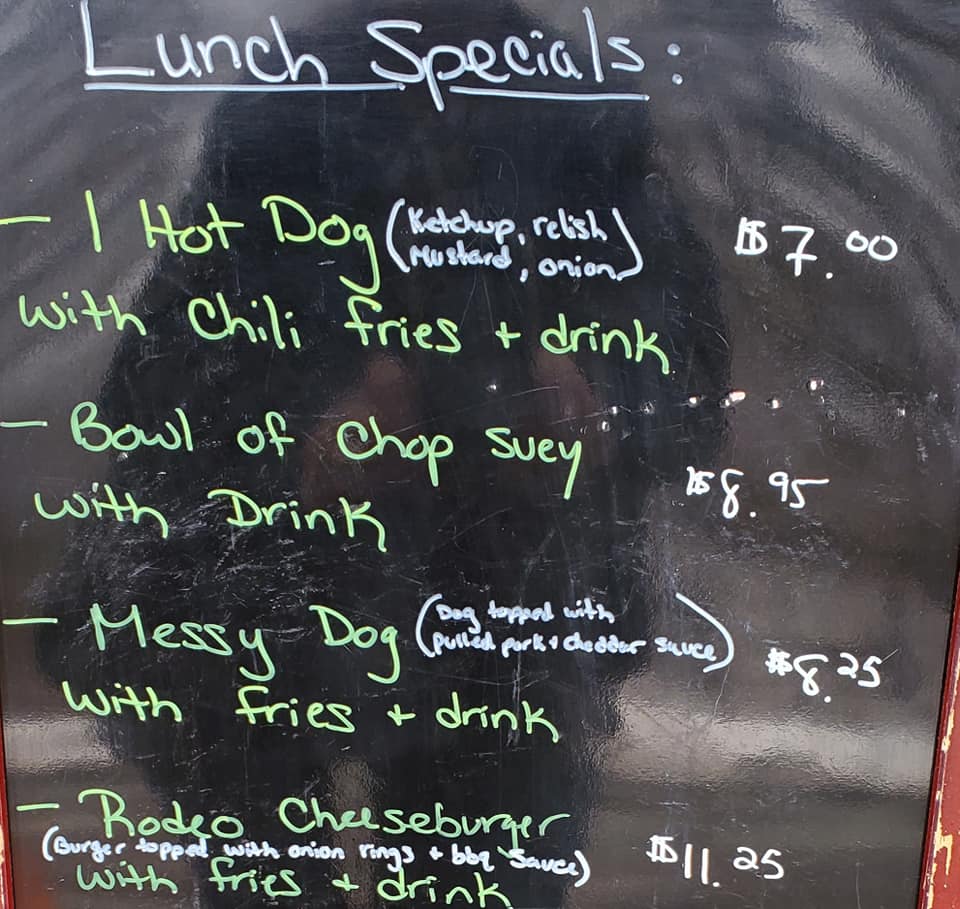 Lunch Specials:
- 1 Hot Dog (Ketchup, relish
Mustard, onion) $7.00
with Chili fries + drink
- Bowl of Chop Suey
with Drink $8.95
- Messy Dog (Dog topped with
pulled pork + cheddar sauce) $8.25
with fries + drink
- Rodeo Cheeseburger
(Burger topped with onion rings + bbq sauce) $11.25
with fries + drink